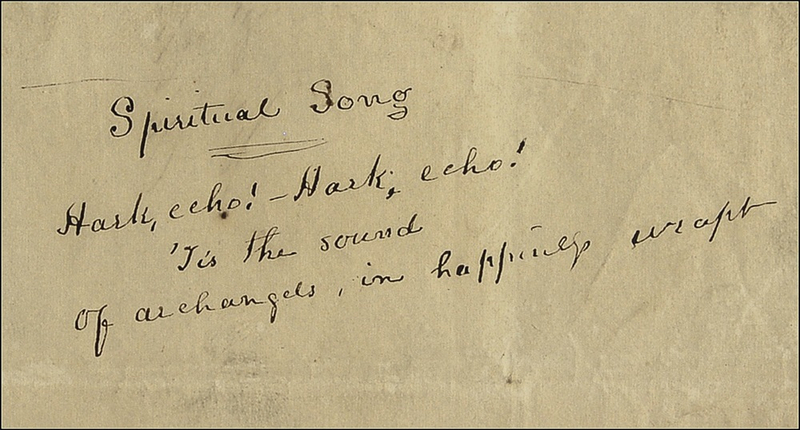 Spiritual Song
Hark, echo! – Hark, echo!
'Tis the sound
Of archangels, in happiness wrapt